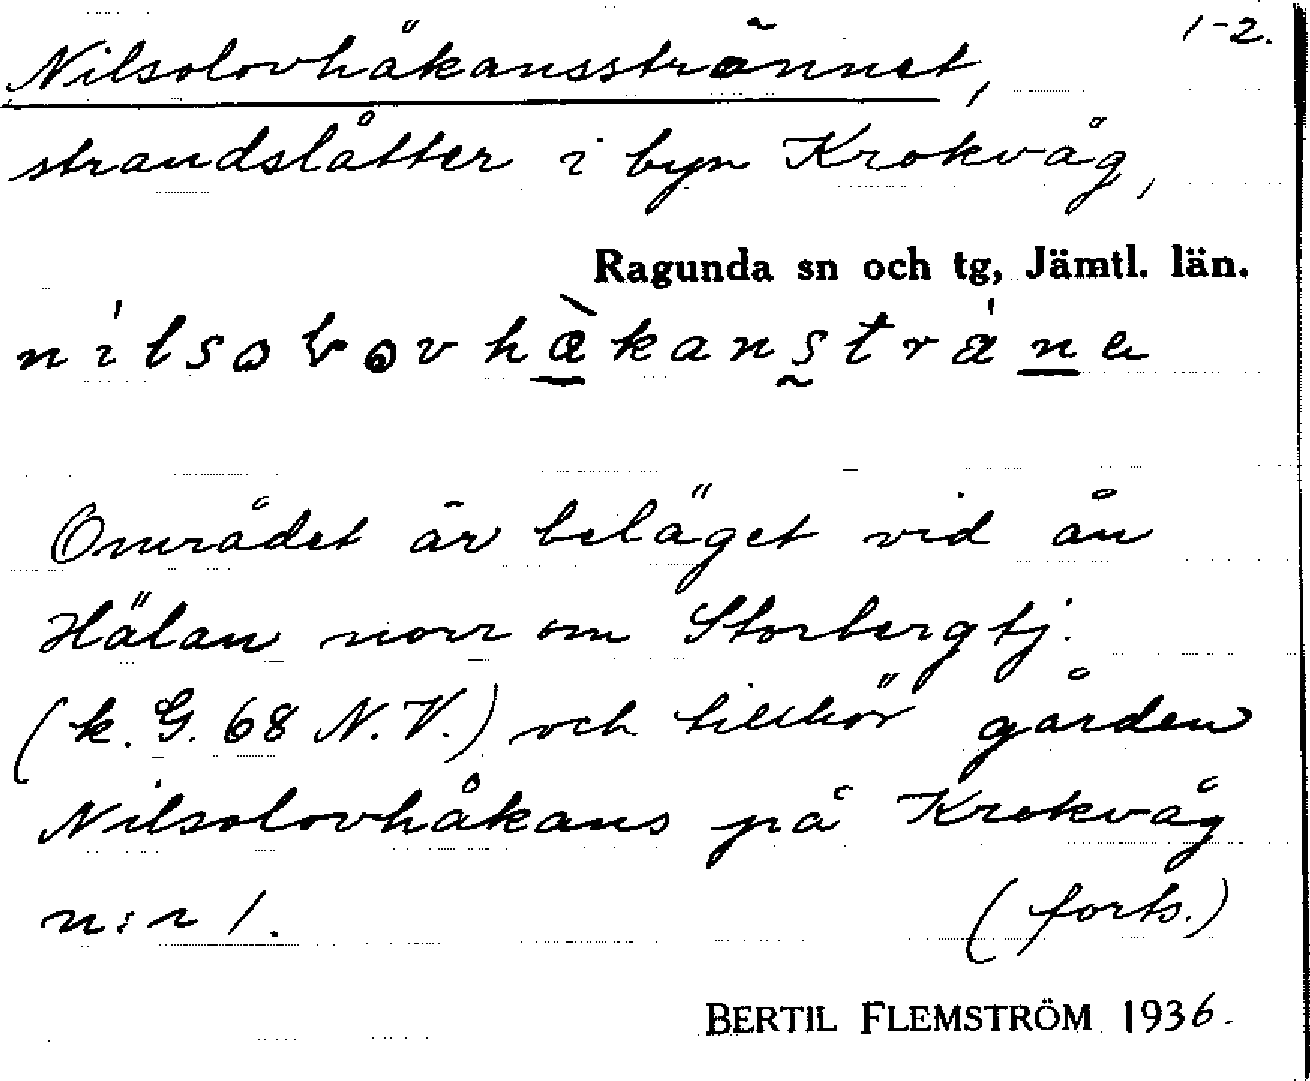 1-2.
Nilsolovhåkansstrännet,
strandslåtter i byn Krokvåg,
Ragunda sn och tg, Jämtl. län.
Området är beläget vid ån
Hälan norr om Storbergtj.
(k. G. 68 N.V.) och tillhör gården
Nilsolovhåkans på Krokvåg
n:r 1. (forts.)
BERTIL FLEMSTRÖM 1936.